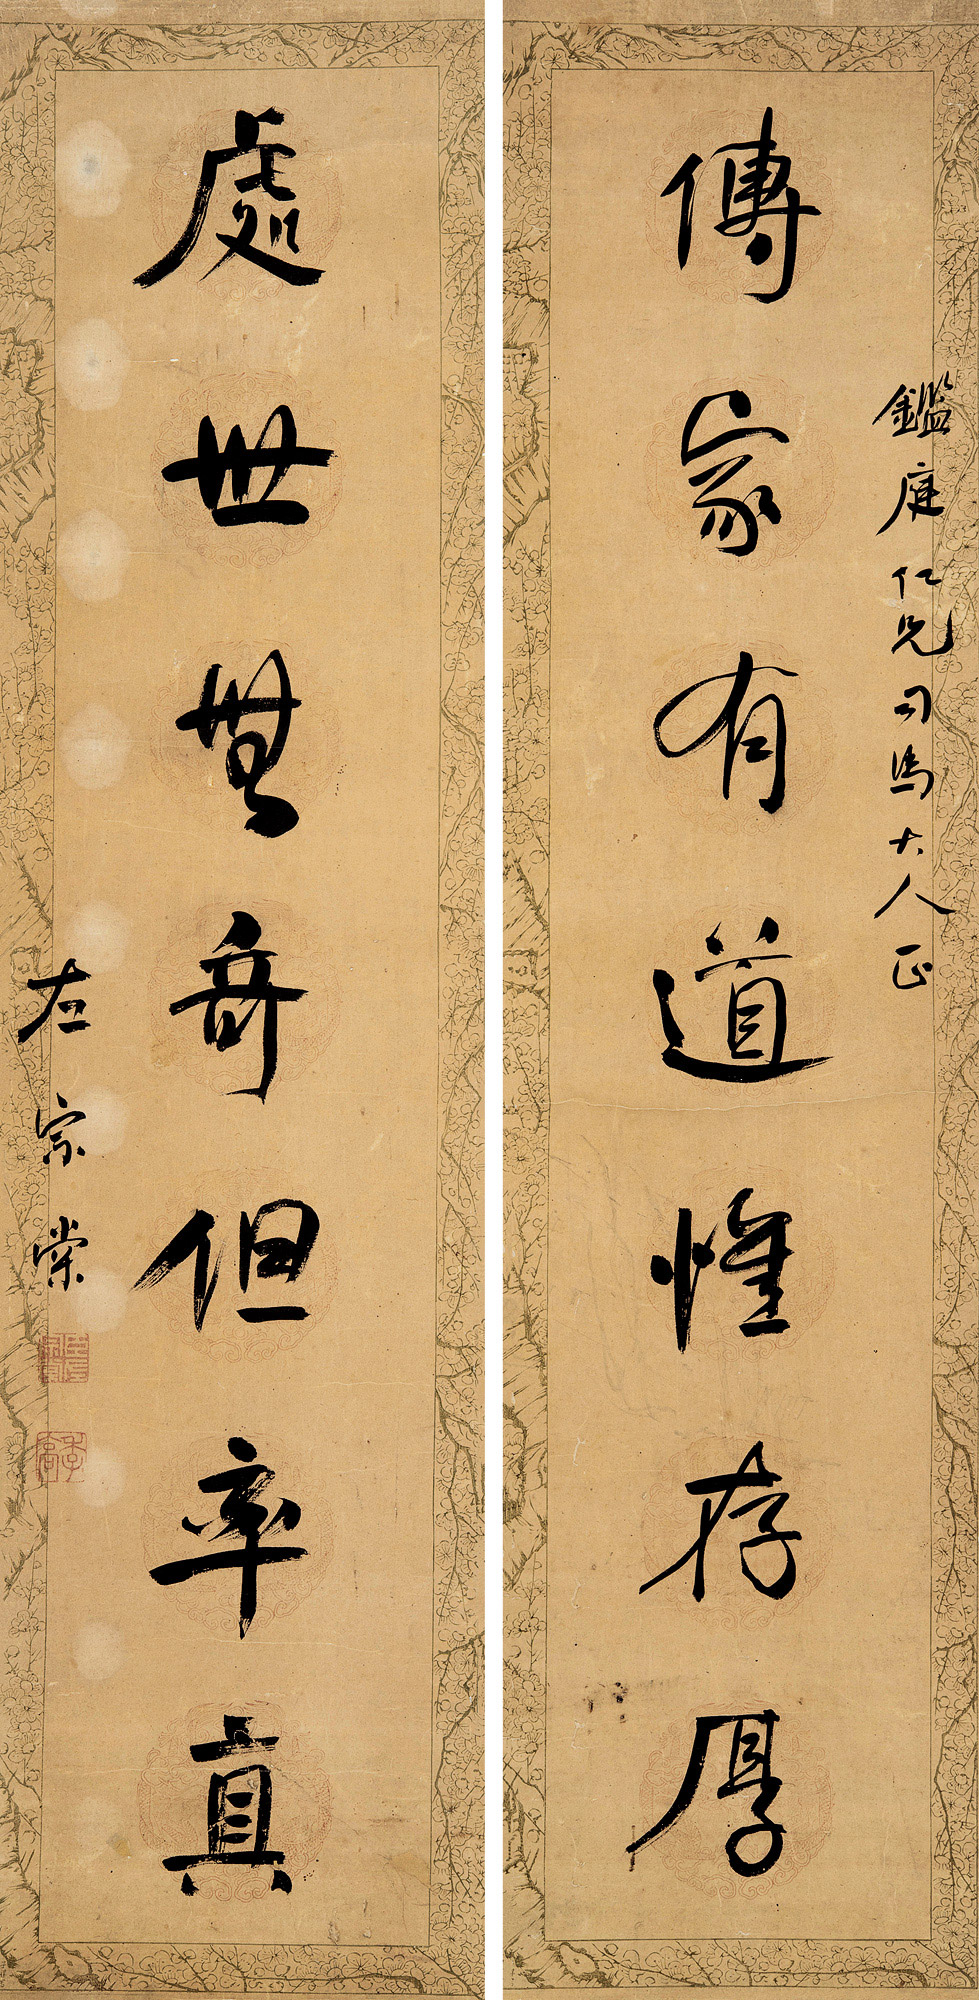 傳家有道惟存厚
鑑庭仁兄司馬大人正
處世無奇但率真
左宗棠
季高